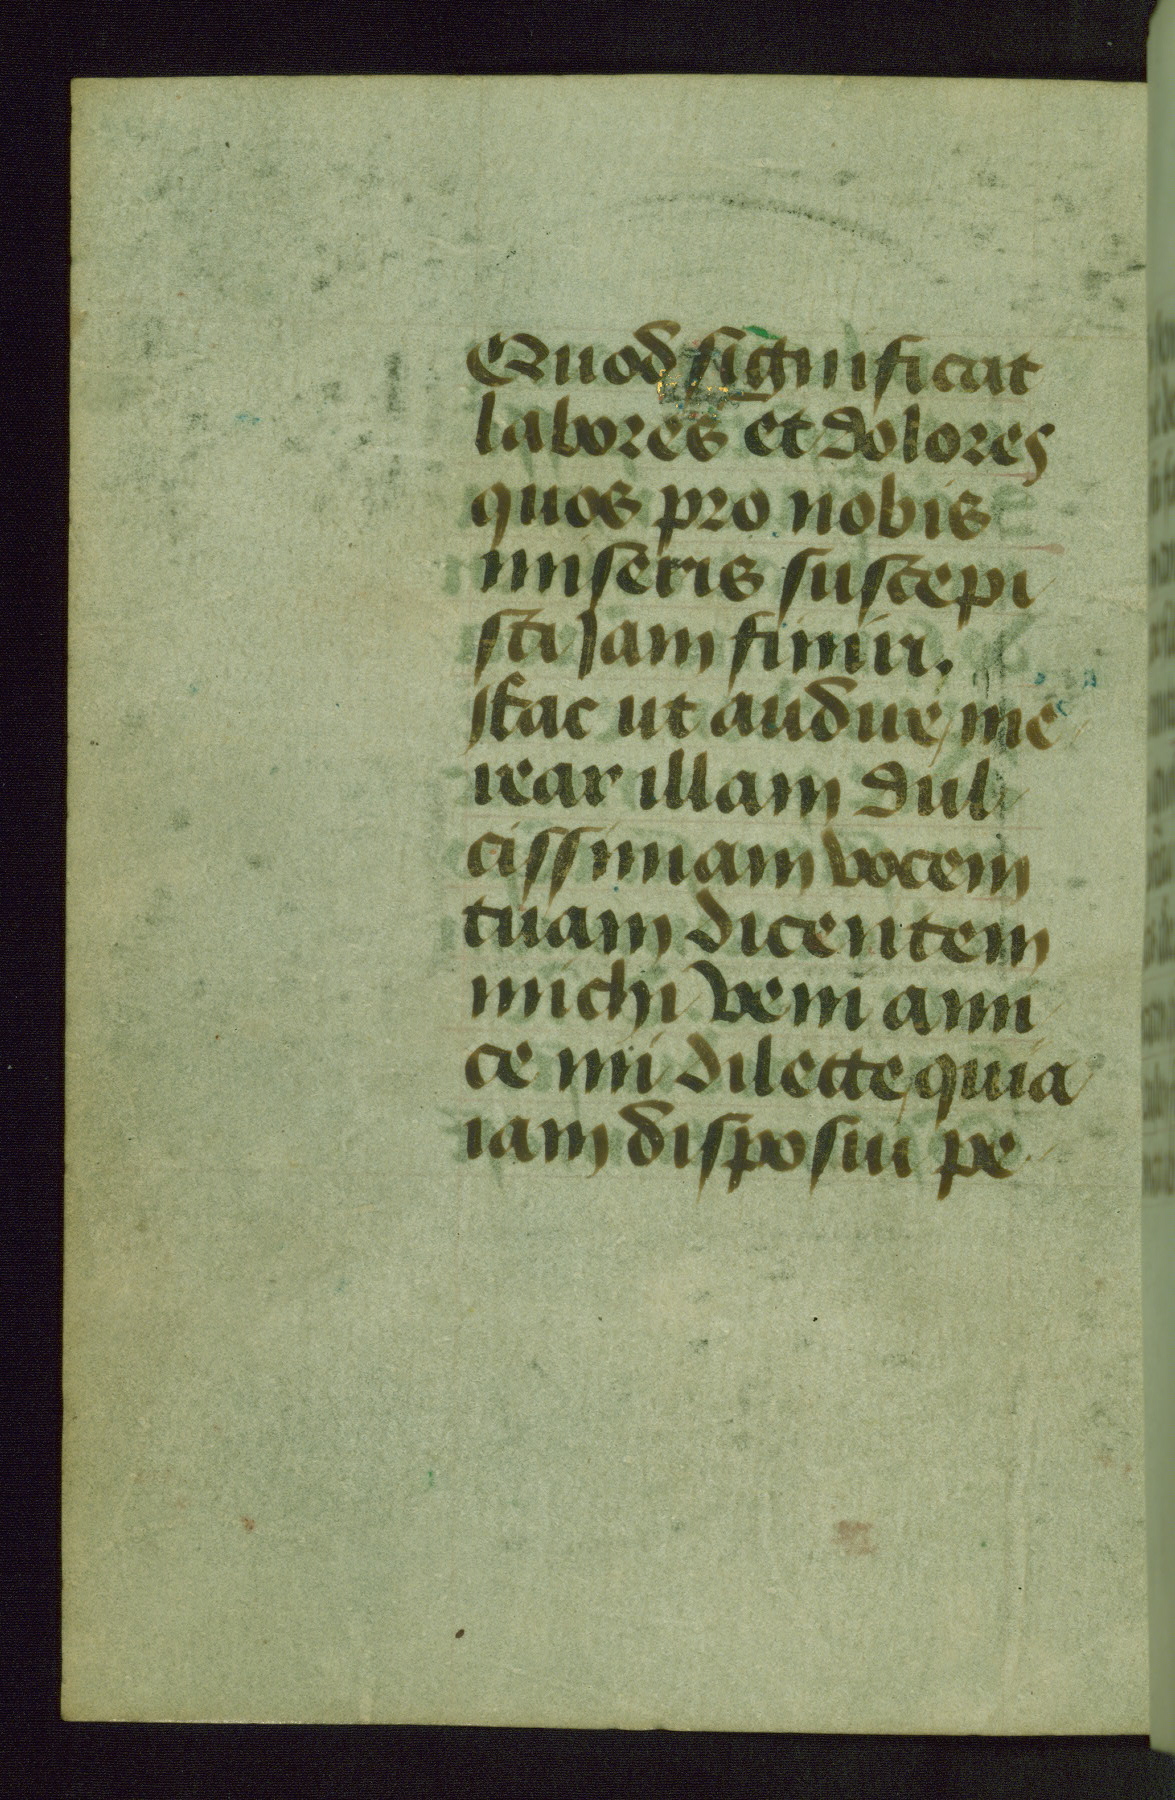 Quod significat
labores et dolores
quos pro nobis
miseris suscepi
sti Jam finiri.
Fac ut audire me
rear illam dul
cissimam vocem
tuam dicentem
michi veni ami
ce mi dilecte quia
iam disposui pe